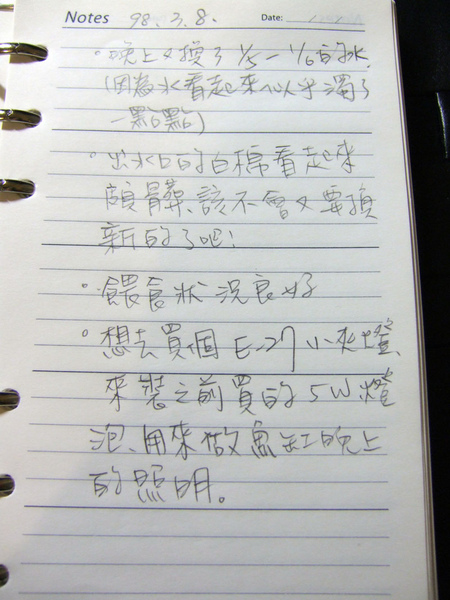 Notes 98.3.8. Date:
。晚上又換了 1/5 - 1/6 的水
(因為水看起來似乎濁了
一點點)
。出水口的白棉看起來
頗髒、該不會又要換
新的了吧!
。餵食狀況良好
。想去買個 E-27 小夾燈
來裝之前買的 5W 燈
泡、用來做魚缸晚上
的照明。